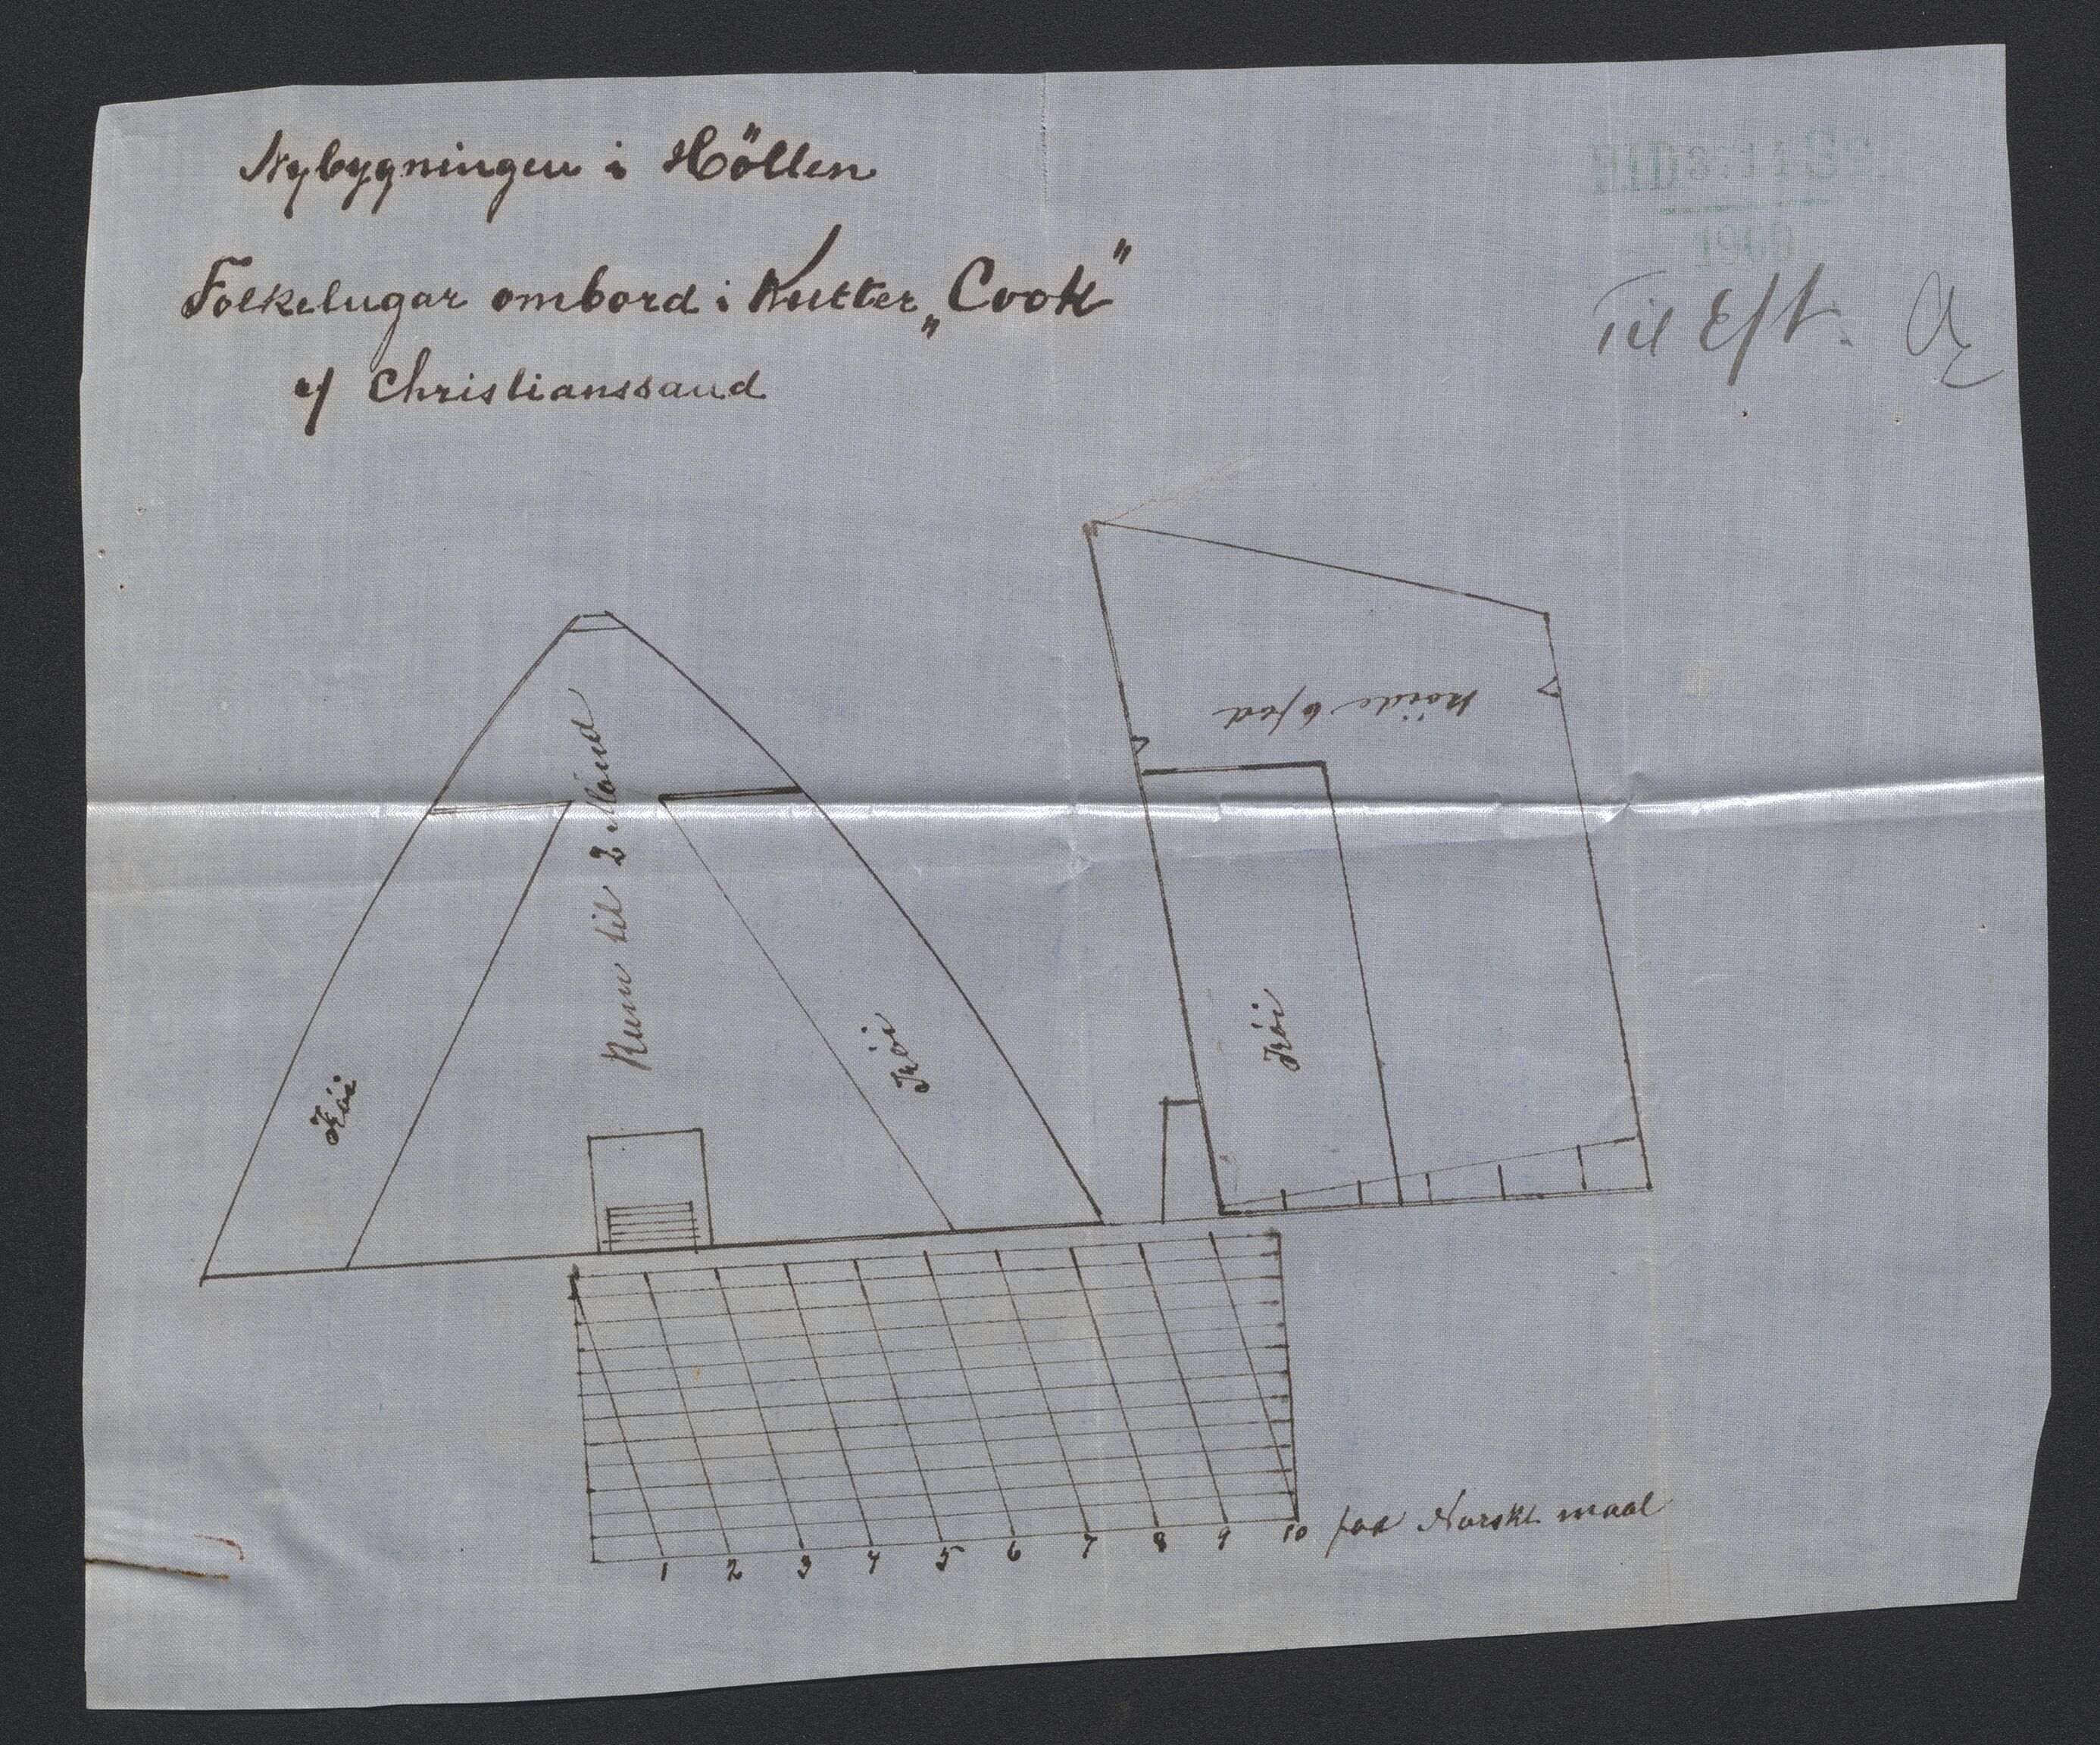 Nybygningen i Höllen
Folkelugar ombord i Kutter „Cook"
af Christianssand
1900
Til Eft.
Höide 6 fod
Rum til 2 Mand
Köi
Köi
Köi
1 2 3 4 5 6 7 8 9 10 fod Norskt maal